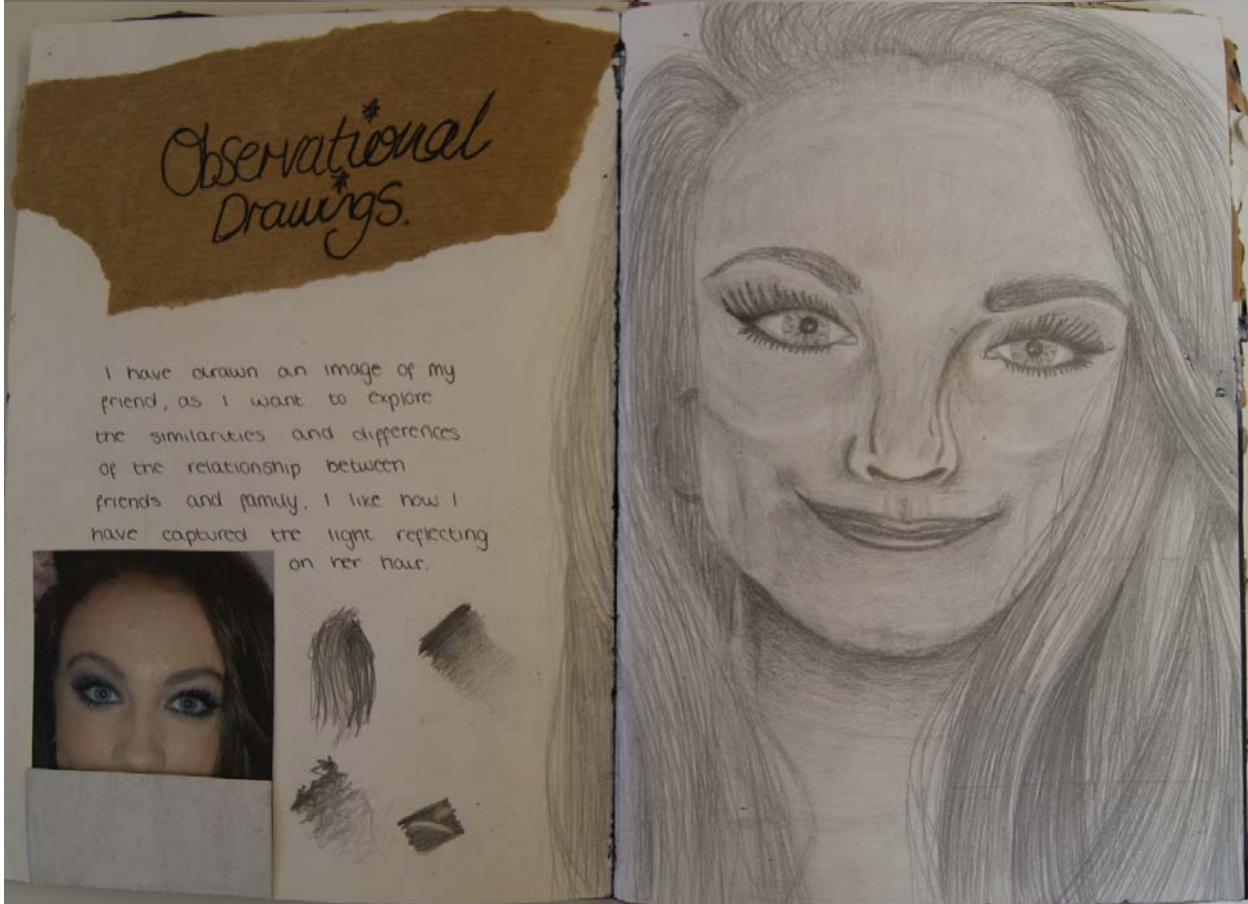 Observational
Drawings.
I have drawn an image of my
friend, as I want to explore
the similarities and differences
of the relationship between
friends and family. I like how I
have captured the light reflecting
on her hair.